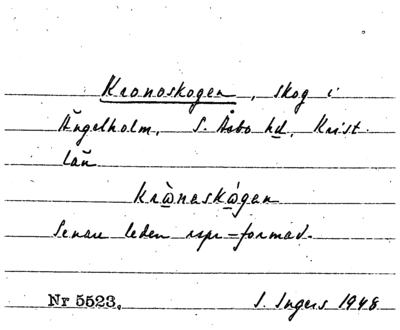 Kronoskogen, skog i
Ängelholm, S. Åsbo hd, Krist.
län
Krὼnaskὼgan
Senare leden rspr-formad.
Nr 5523. I. Ingers 1948